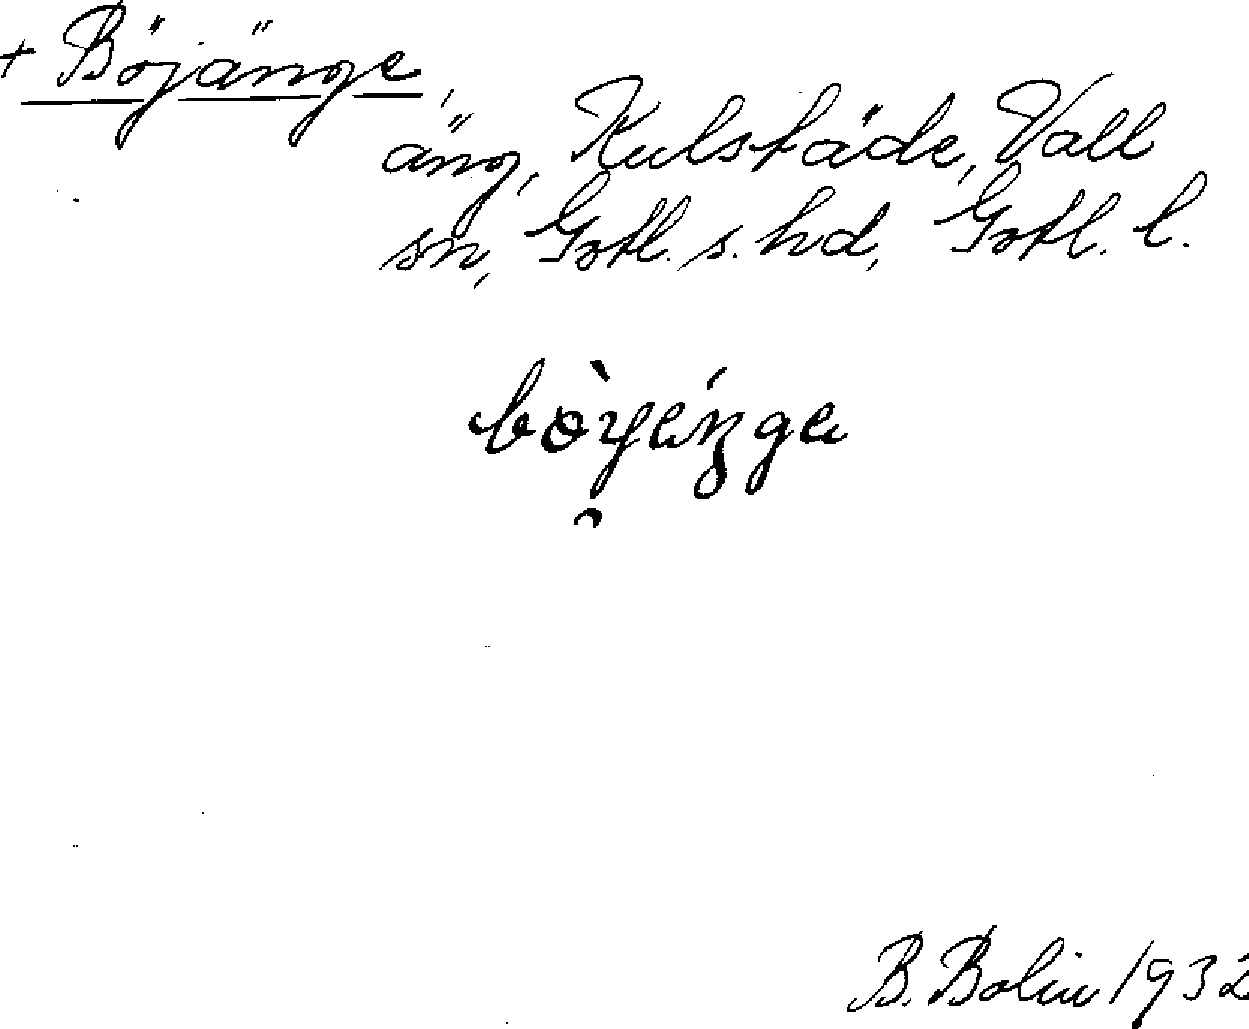 + Böjänge,
äng, Kulstäde, Vall
sn, Gotl. s. hd, Gotl. l.
B. Bolin 1932